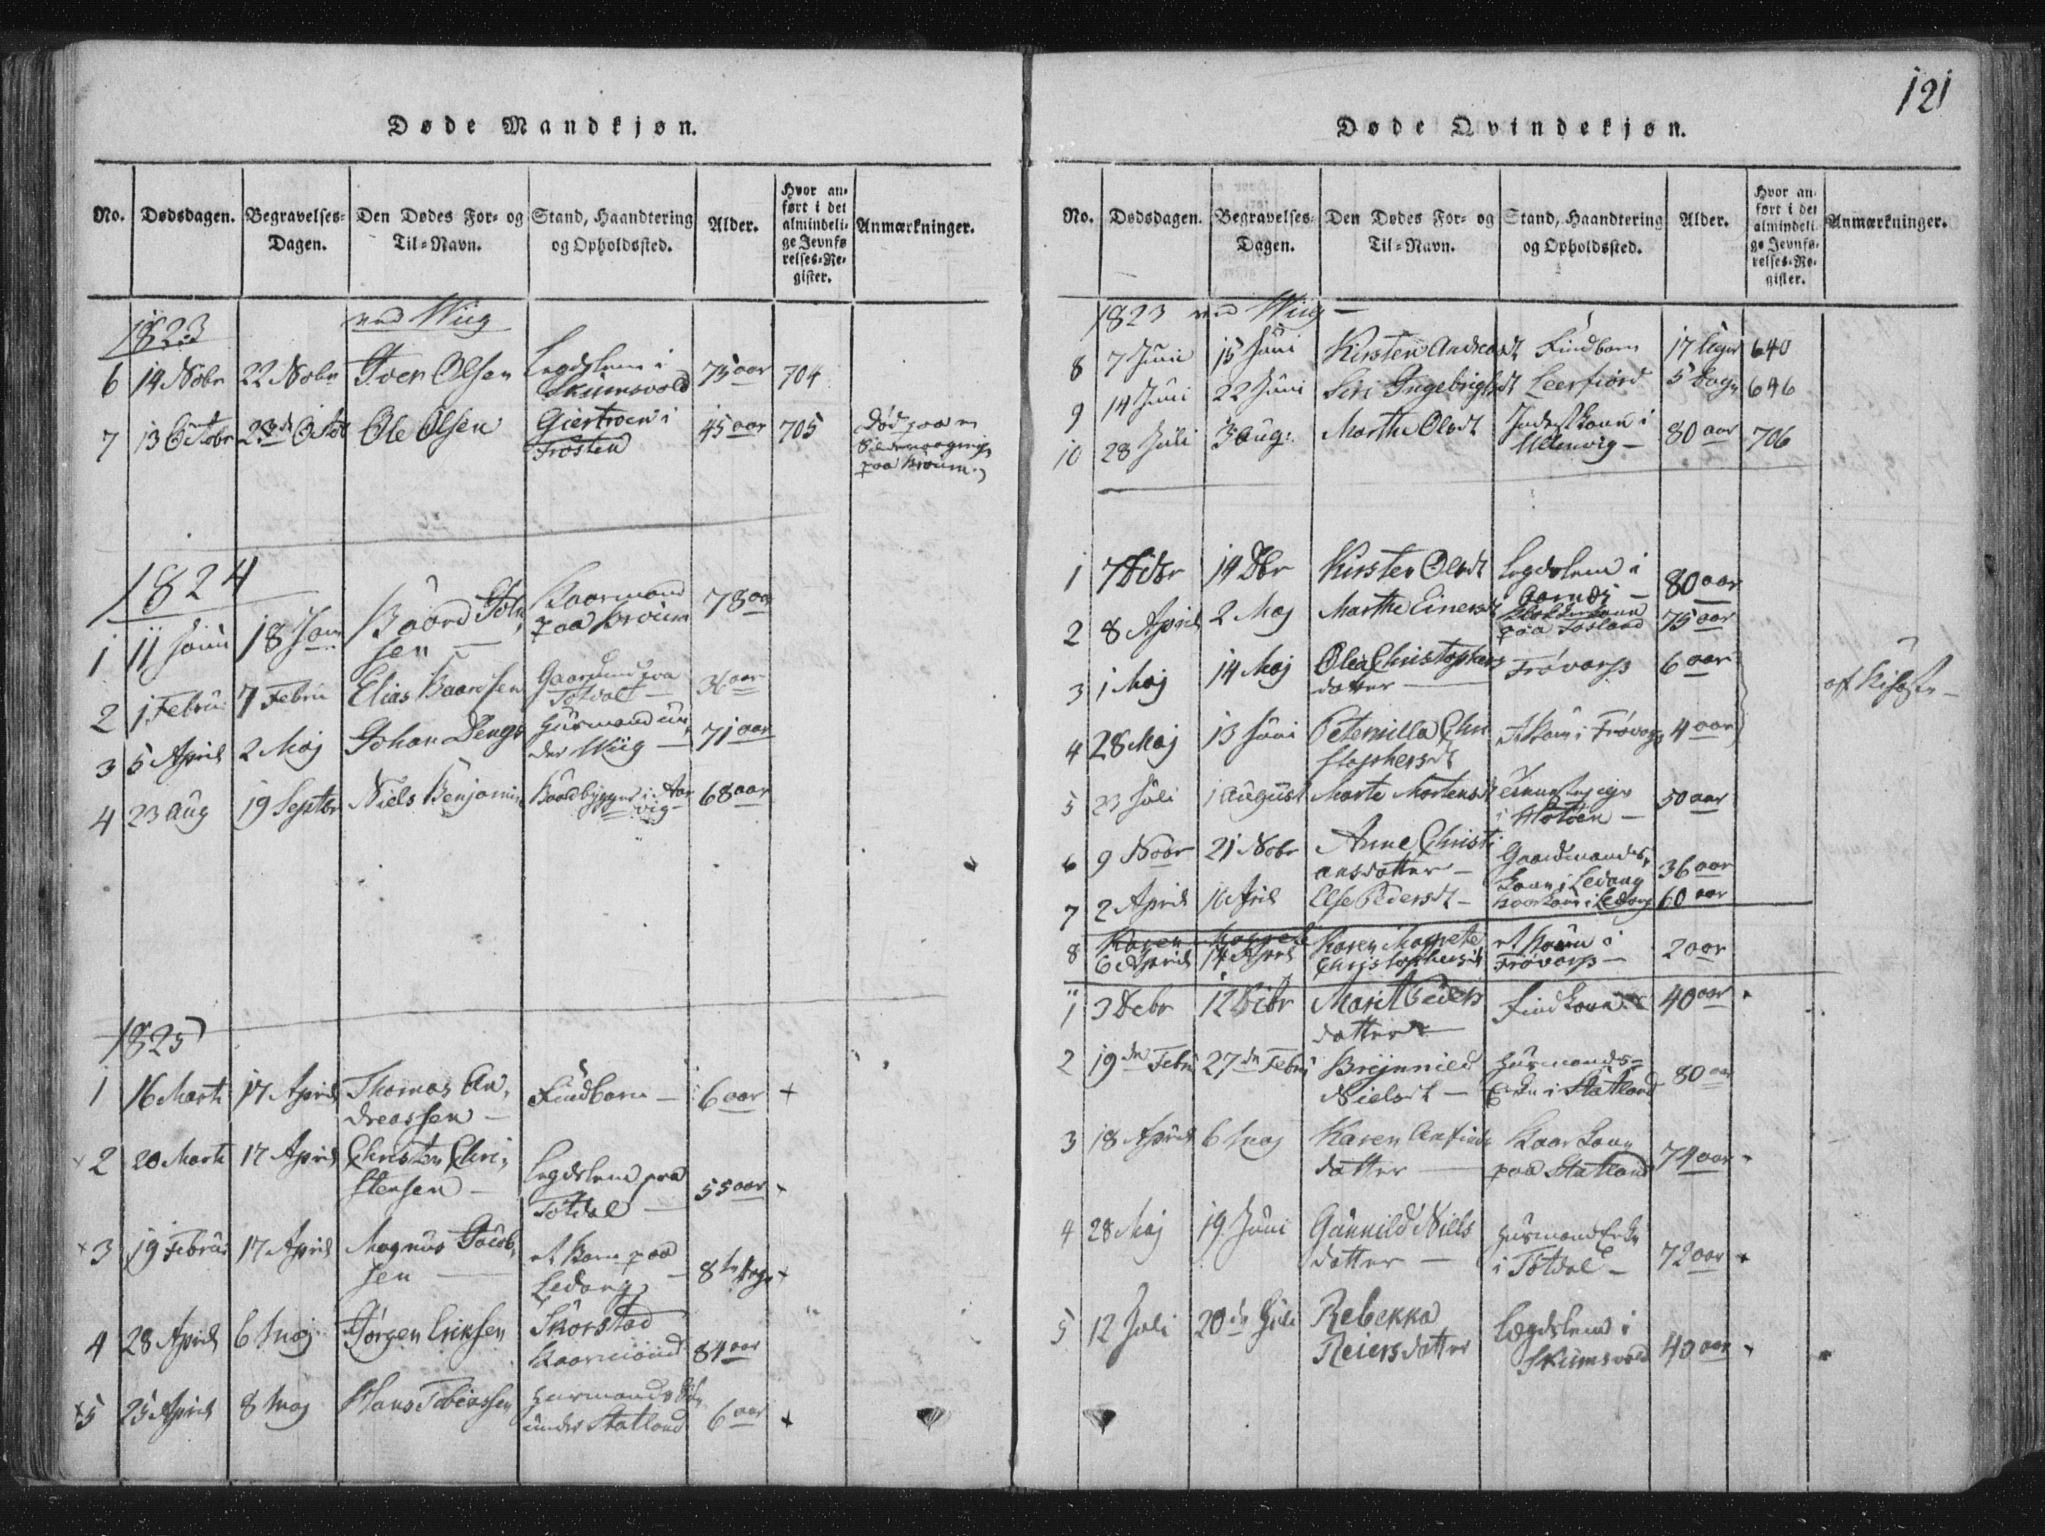 121
Døde Mandkjøn.
No. Dødsdagen. Begravelses-Dagen. Den Dødes For- og Til-Navn. Stand, Haandtering og Opholdssted. Alder. Hvor anført i det almindelige Jevnførelses-Register. Anmærkninger.
1823 ved Wiig
6 14 Nobr 22 Nobr Iver Olsen Legdslem i
Skiumsvold 75 aar 704
7 13 Octobr 23de Octob Ole Olsen Giertroen i
Frosten 45 aar 705 Død paa en
paa Broum
1824
1 11 Janu 18 Jan Baard Joh
sen Kaarmand
paa Broum 78 aar
2 1 Febru 7 Febru Elias Baardsen Gaardmd paa
Totdal 36 aar
3 5 April 2 Maj Johan Bengs Huusmand un
der Wiig 71 aar
4 23 Aug 19 Septbr Niels Benjamin Baadbygger i Aar
vig 68 aar
1825
1 16 Marti 17 April Thomas An
dreassen Findbarn 6 aar +
2 20 Marti 17 April Christen Chri
stensen Legdslem paa
Totdal 55 aar +
3 19 Februar 17 April Magnus Jacob
sen et Barn paa
Ledang 8te Dage +
4 28 April 6 Maj Jørgen Eriksen Skorstad
Kaarmand 84 aar
5 25 April 8 Maj Hans Tobiassen Huusmands
under Statland 6 aar +
Døde Qvindekjøn.
No. Dødsdagen. Begravelses-Dagen. Den Dødes For- og Til-Navn. Stand, Haandtering og Opholdssted. Alder. Hvor anført i det almindelige Jevnførelses-Register. Anmærkninger.
1823 ved Wiig
8 7 Juni 15 Juni Kirsten Andreasdt Findbarn 17 Uger 640
9 14 Juni 22 Juni Siri Ingebrigtsdt Leerfiord 5 Dage 646
10 28 Juli 3 Aug: Marthe Olsdt
80 aar 706
1 7 Octbr 19 Obr Kirsten Olsdt Legdslem i
80 aar
2 8 April 2 Maj Marthe Einersdt
paa Fosland 75 aar
3 1 Maj 14 Maj Olea Christophers
datter Frøvarp 6 aar
4 28 Maj 13 Juni Peternilla Chri
stophersdt et Barn i Frøvarp 4 aar
5 23 Juli 1 August Marte Mortensdt
i Utstøen 50 aar
6 9 Nobr 21 Nobr Anne Christi
ansdatter Gaardmands
kone i Ledang 36 aar
7 2 April 16 April Else Pedersdt i Ledang 60 aar
8 6 April 14 April Karen Margrete
Christophersdt et Barn i
Frøvarp 2 aar
1 3 Debr 12 Debr Marit Peders
datter Findkone 40 aar
2 19de Febru 27de Febru Brynnild
Nielsdt Huusmands-
Enke i Statland 80 aar
3 18 April 6 Maj Karen Anfinds
datter Kaarkone
paa Statland 74 aar
4 28 Maj 19 Juni Gunnild Niels
datter Huusmand Enke
i Totdal 72 aar
5 12 Juli 20de Juli Rebekka
Reiersdatter Lægdslem i
Skiumsvold 40 aar